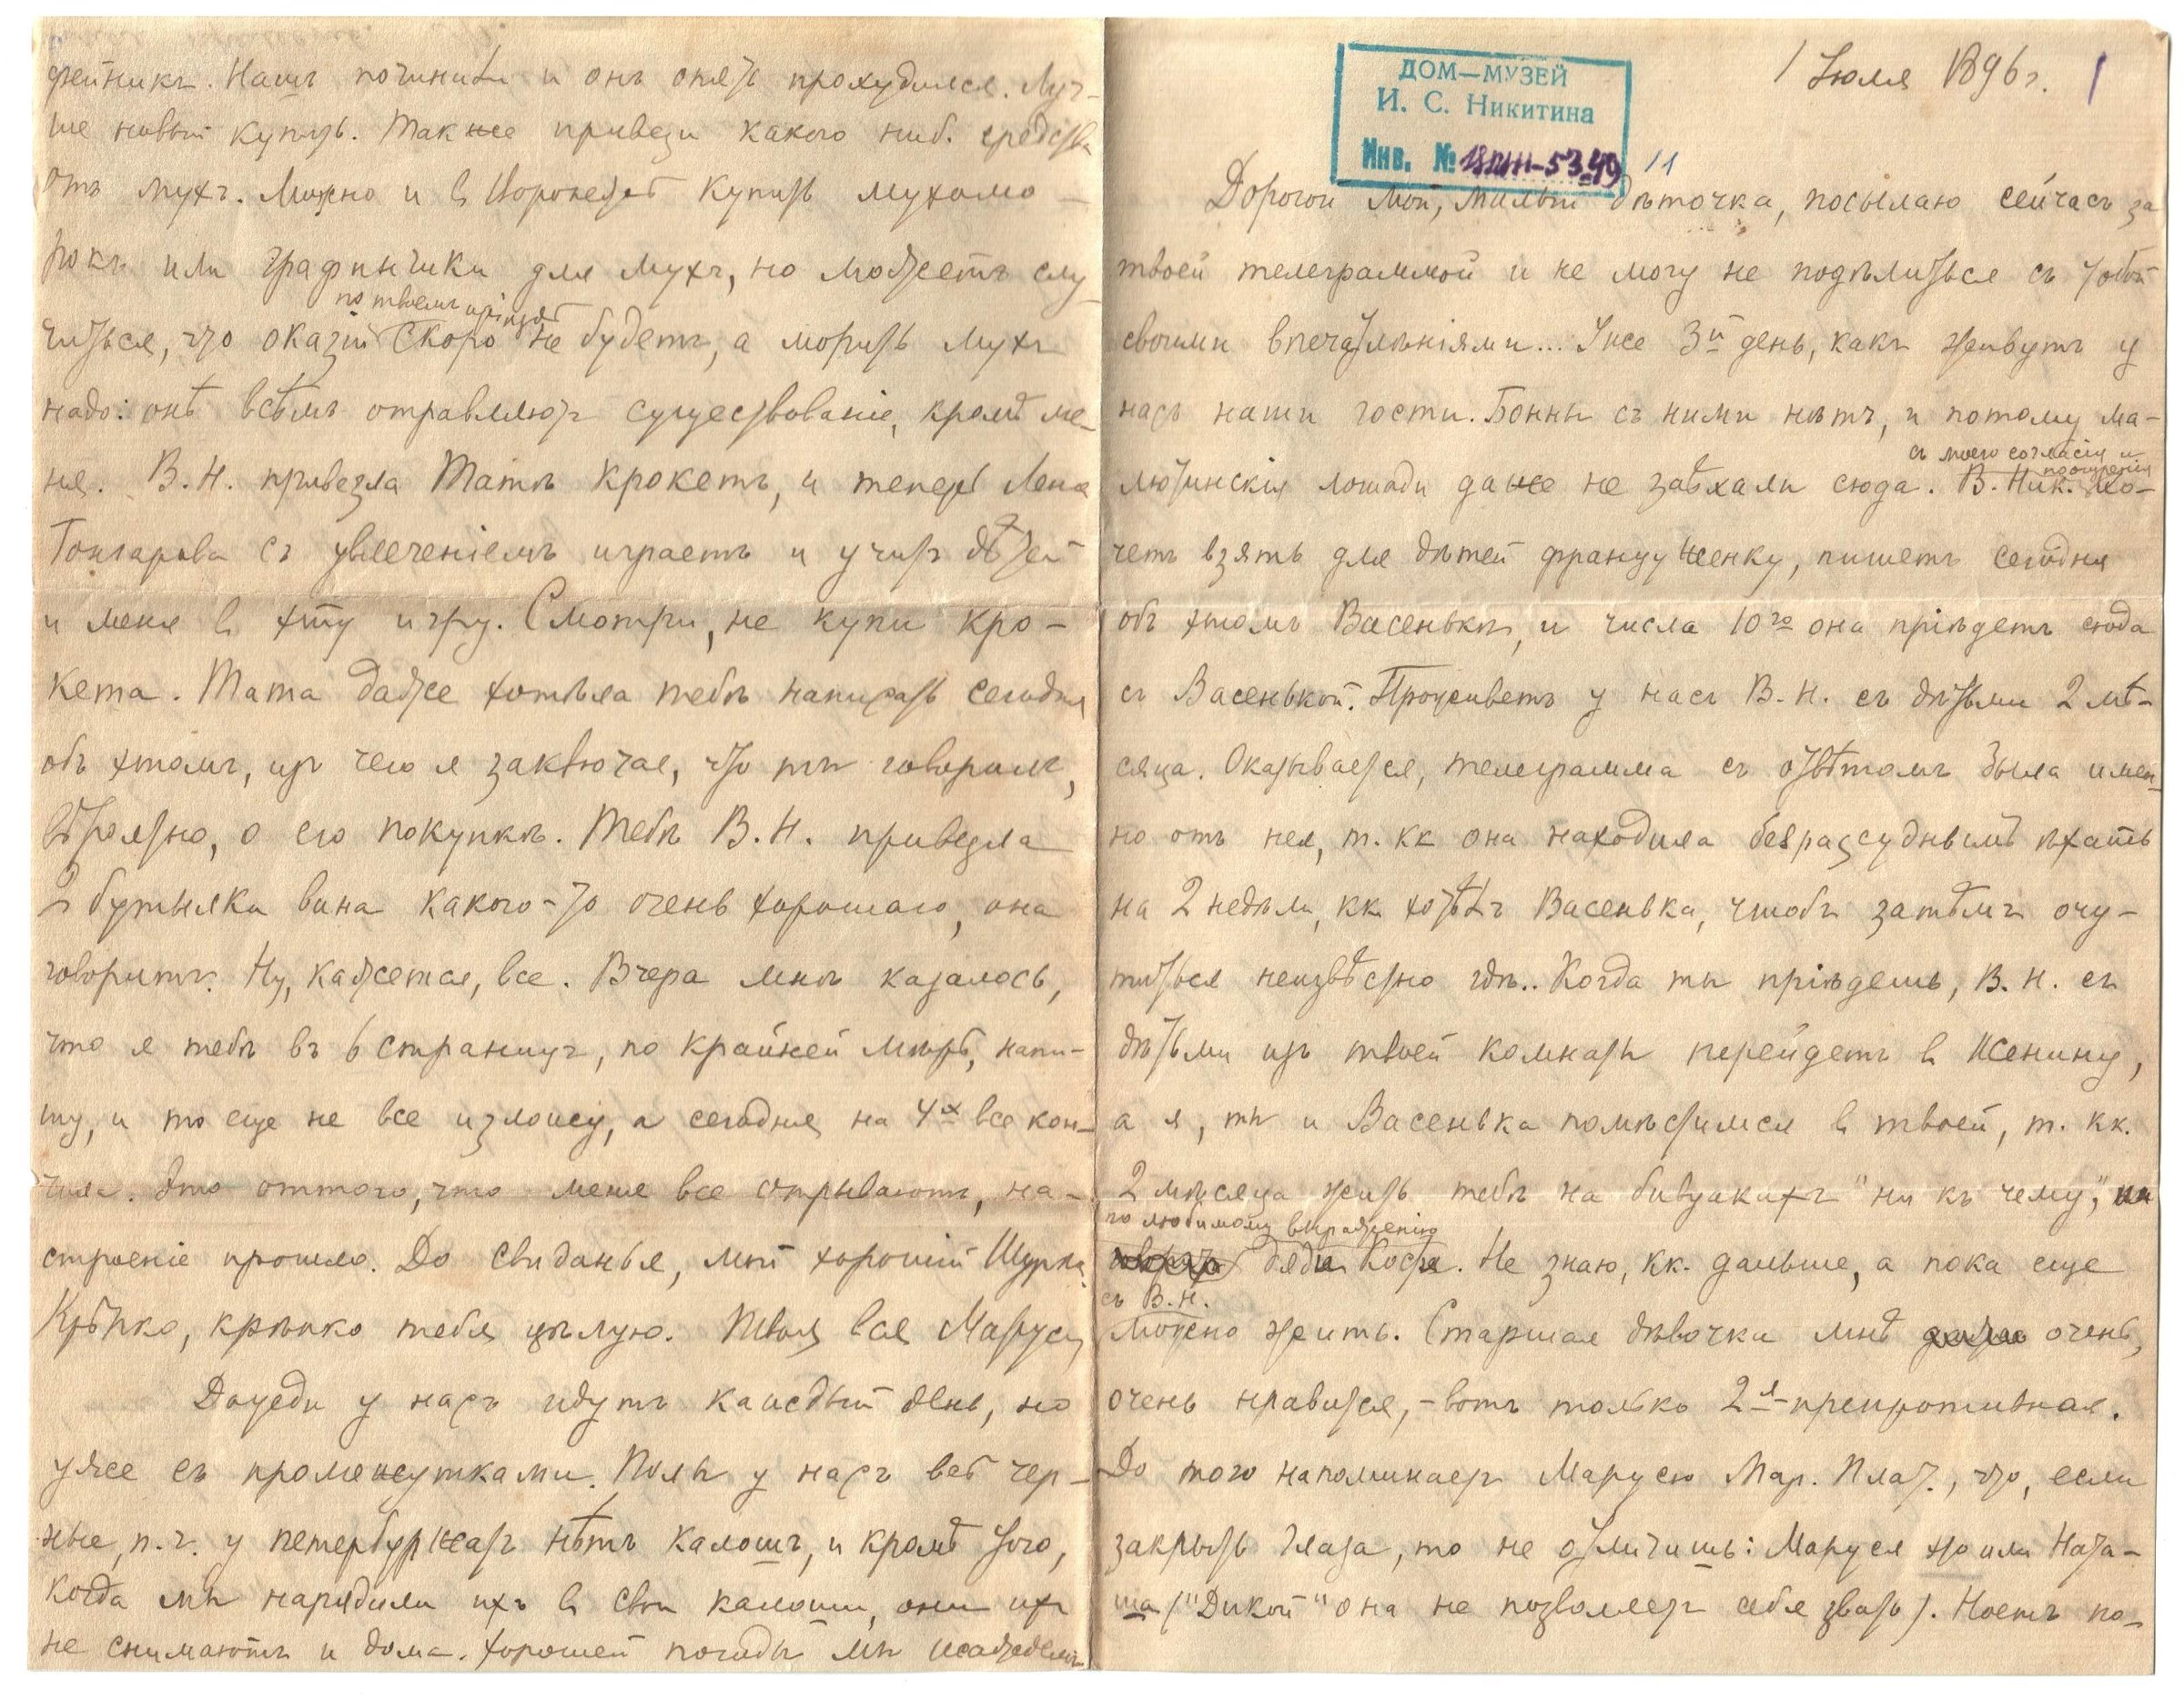 фейникъ. Нашъ починили и онъ опять прохудился. Луч-
ше новый купить. Также привези какого ниб. средства
отъ мухъ. Можно и въ Воронежѣ купить мухомо-
рокъ или графинчики для мухъ, но можетъ слу-
по твоемъ пріѣздѣ
читься, что оказій скоро не будетъ, а морить мухъ
надо: онѣ всѣмъ отравляютъ существованіе, кромѣ ме-
ня. В.Н. привезла Татѣ крокетъ, и теперь Лена
Гончарова съ увлеченіемъ играетъ и учитъ дѣтей
и меня въ эту игру. Смотри, не купи кро-
кета. Тата даже хотѣла тебѣ написать сегодня
объ этомъ, изъ чего я заключаю, что ты говорилъ,
вѣроятно, о его покупкѣ. Тебѣ В.Н. привезла
2 бутылки вина какого-то очень хорошаго, она
говоритъ. Ну, кажется, все. Вчера мнѣ казалось,
что я тебѣ въ 6 страницъ, по крайней мѣрѣ, напи-
шу, и то еще не все изложу, а сегодня на 4х все кон-
чила. Это оттого, что меня все отрываютъ, на-
строеніе прошло. До свиданья, мой хорошій Шурка.
Крѣпко, крѣпко тебя цѣлую. Твоя вся Маруся
Дожди у насъ идутъ каждый день, но
уже съ промежутками. Полы у насъ всѣ чер-
ные, п.ч. у петербуржатъ нѣтъ калошъ, и кромѣ того,
когда мы нарядили ихъ въ свои калоши, они ихъ
не снимаютъ и дома. Хорошей погоды мы
ДОМ—МУЗЕЙ
И. С. Никитина
Инв. № 5349
11
1 Іюля 1896 г.
1
Дорогой мой, милый дѣточка, посылаю сейчасъ за
твоей телеграммой и не могу не подѣлиться съ тобой
своими впечатлѣніями... Уже 3й день, какъ живутъ у
насъ наши гости. Бонны съ ними нѣтъ, и потому ма-
съ моего согласія и
поощренія
лютинскія лошади даже не заѣхали сюда. В. Ник. хо-
четъ взять для дѣтей француженку, пишетъ сегодня
объ этомъ Васенькѣ, и числа 10го она пріѣдетъ сюда
съ Васенькой. Проживетъ у насъ В.Н. съ дѣтьми 2 мѣ-
сяца. Оказывается, телеграмма съ отвѣтомъ была имен-
но отъ нея, т. кк она находила безразсуднымъ ѣхать
на 2 недѣли, кк хотѣлъ Васенька, чтобъ затѣмъ очу-
титься неизвѣстно гдѣ.. Когда ты пріѣдешь, В.Н. съ
дѣтьми изъ твоей комнаты перейдетъ въ Женину,
а я, ты и Васенька помѣстимся въ твоей, т. кк.
2 мѣсяца жить тебѣ на бивуакахъ "ни къ чему",
по любимому выраженію
дяди Кости. Не знаю, кк. дальше, а пока еще
съ В.Н.
можно жить. Старшая дѣвочка мнѣ очень,
очень нравится, - вотъ только 2я - препротивная.
До того напоминаетъ Марусю Мар. Плат., что, если
закрыть глаза, то не отличишь: Маруся это или Ната-
ша ("Дикой" она не позволяетъ себя звать). Ноетъ по-